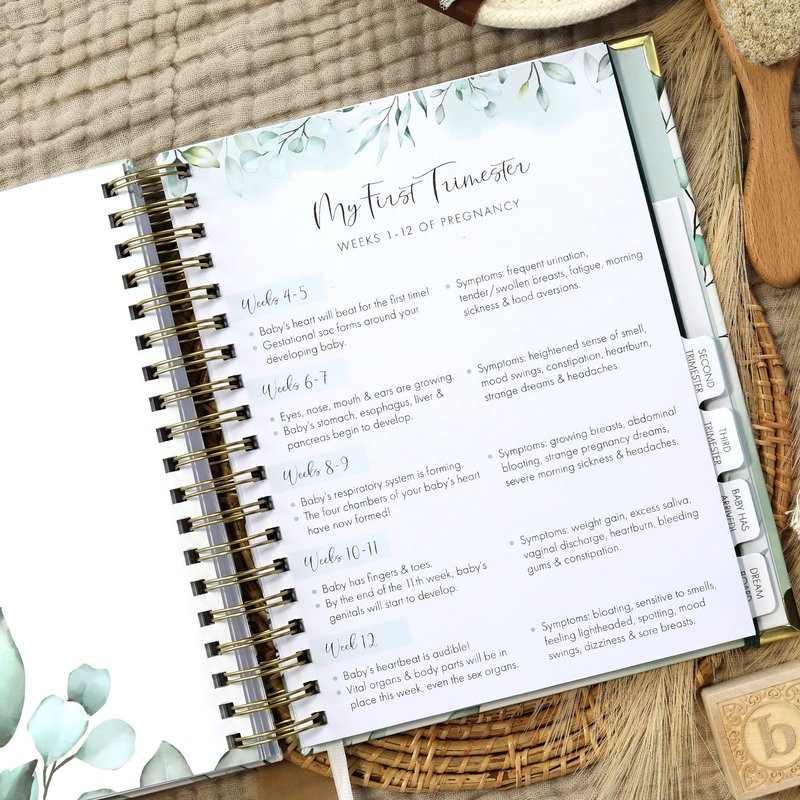 My First Trimester
WEEKS 1-12 OF PREGNANCY
Weeks 4-5
Baby's heart will beat for the first time!
Gestational sac forms around your
developing baby.
Symptoms: frequent urination,
tender/swollen breasts, fatigue, morning
sickness & food aversions.
Weeks 6-7
Eyes, nose, mouth & ears are growing.
Baby's stomach, esophagus, liver &
pancreas begin to develop.
Symptoms: heightened sense of smell,
mood swings, constipation, heartburn,
strange dreams & headaches.
Weeks 8-9
Baby's respiratory system is forming.
The four chambers of your baby's heart
have now formed!
Symptoms: growing breasts, abdominal
bloating, strange pregnancy dreams,
severe morning sickness & headaches.
Weeks 10-11
Baby has fingers & toes.
By the end of the 11th week, baby's
genitals will start to develop.
Symptoms: weight gain, excess saliva,
vaginal discharge, heartburn, bleeding
gums & constipation.
Week 12
Baby's heartbeat is audible!
Vital organs & body parts will be in
place this week, even the sex organs.
Symptoms: bloating, sensitive to smells,
feeling lightheaded, spotting, mood
swings, dizziness & sore breasts.
SECOND
TRIMESTER
THIRD
TRIMESTER
BABY HAS
ARRIVED!
DREAM
BOARD
b